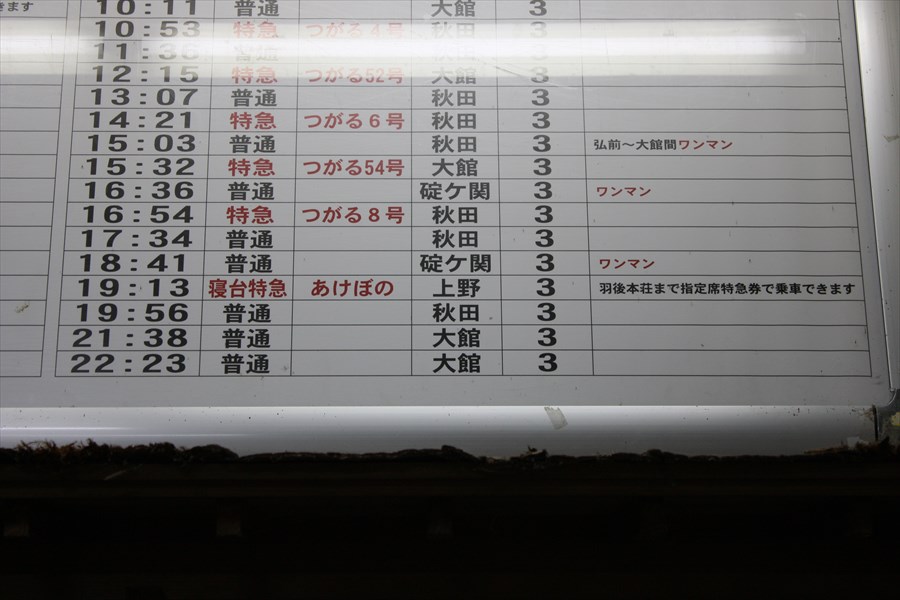 きます
10:11 普通 大館 3
10:53 特急 つがる4号 秋田 3
11:36 普通 3
12:15 特急 つがる52号 大館 3
13:07 普通 秋田 3
14:21 特急 つがる6号 秋田 3
15:03 普通 秋田 3 弘前～大館間ワンマン
15:32 特急 つがる54号 大館 3
16:36 普通 碇ケ関 3 ワンマン
16:54 特急 つがる8号 秋田 3
17:34 普通 秋田 3
18:41 普通 碇ケ関 3 ワンマン
19:13 寝台特急 あけぼの 上野 3 羽後本荘まで指定席特急券で乗車できます
19:56 普通 秋田 3
21:38 普通 大館 3
22:23 普通 大館 3